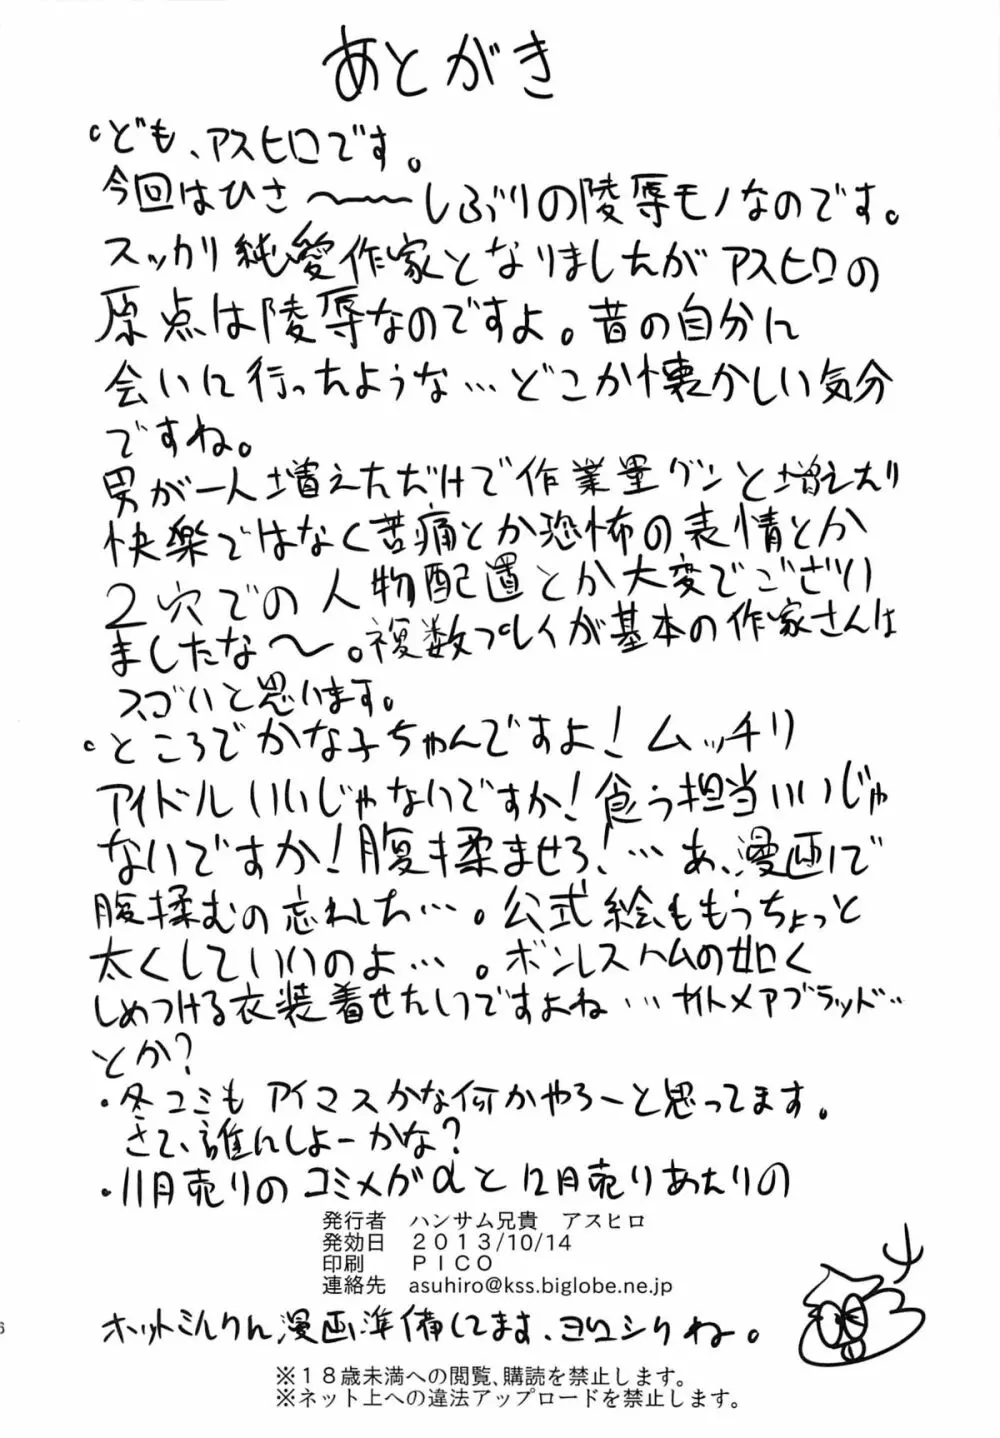 あとがき
。ども、アスヒロです。
今回はひさ〜〜〜しぶりの陵辱モノなのです。
スッカリ純愛作家となりましたがアスヒロの
原点は陵辱なのですよ。昔の自分に
会いに行ったような…どこか懐かしい気分
ですね。
男が一人増えただけで作業量グンと増えたり
快楽ではなく苦痛とか恐怖の表情とか
2穴での人物配置とか大変でござい
ましたな〜。複数プレイが基本の作家さんは
スゴいと思います。
。ところでかな子ちゃんですよ!ムッチリ
アイドルいいじゃないですか!食う担当いいじゃ
ないですか!腹揉ませろ!…あ、漫画で
腹揉むの忘れした…。公式絵ももうちょっと
太くしていいのよ…。ボンレスハムの如く
しめつける衣装着せたいですよね…ナイトメアブラッド…
とか?
・冬コミもアイマスかな何かやろーと思ってます。
さて、誰んしよーかな?
・11月売りのコミメガαと12月売りあたりの
発行者 ハンサム兄貴 アスヒロ
発効日 2013/10/14
印刷 PICO
連絡先 asuhiro@kss.biglobe.ne.jp
ホットミルクん漫画準備してます、ヨロシクね。
※18歳未満への閲覧、購読を禁止します。
※ネット上への違法アップロードを禁止します。
6